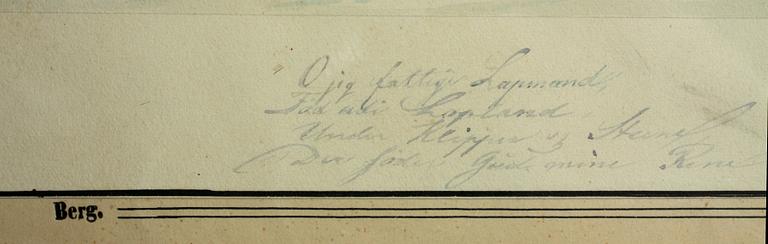 O jeg fattige Lapmand,
Fød udi Lapland,
Under Klipper og Steene
Der føder Gud mine Rene
Berg.